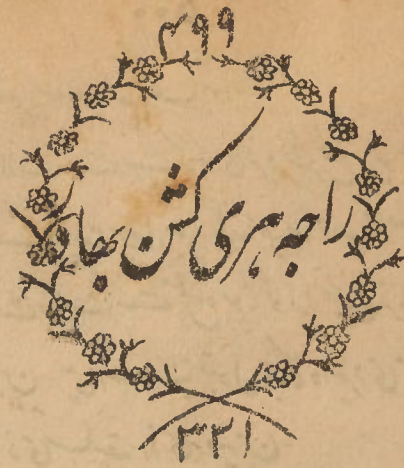 ۳۹۹
راجہ ہری کشن بھادر
۳۲۱